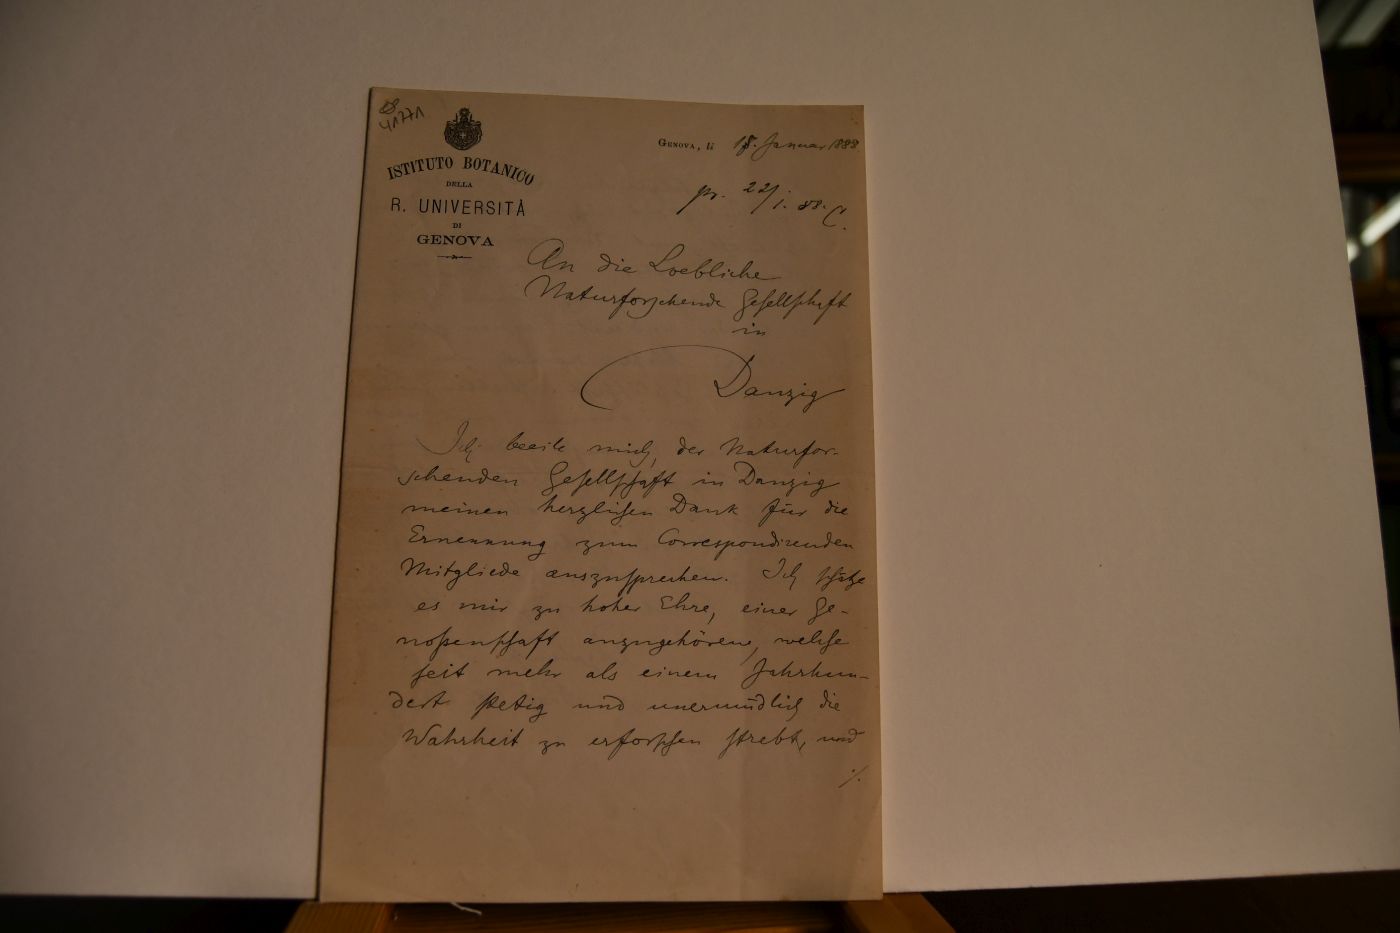 41771
ISTITUTO BOTANICO
DELLA
R. UNIVERSITÀ
DI
GENOVA
GENOVA, li 18. Januar 1888
pr. 22/1. 88. C.
An die Loebliche
Naturforschende Gesellschaft
in
Danzig
Ich beeile mich, der Naturfor-
schenden Gesellschaft in Danzig
meinen herzlichen Dank für die
Ernennung zum Correspondirenden
Mitgliede auszusprechen. Ich schätze
es mir zu hoher Ehre, einer Ge-
noßenschaft anzugehören, welche
seit mehr als einem Jahrhun-
dert stetig und unermüdlich die
Wahrheit zu erforschen strebt, und
./.